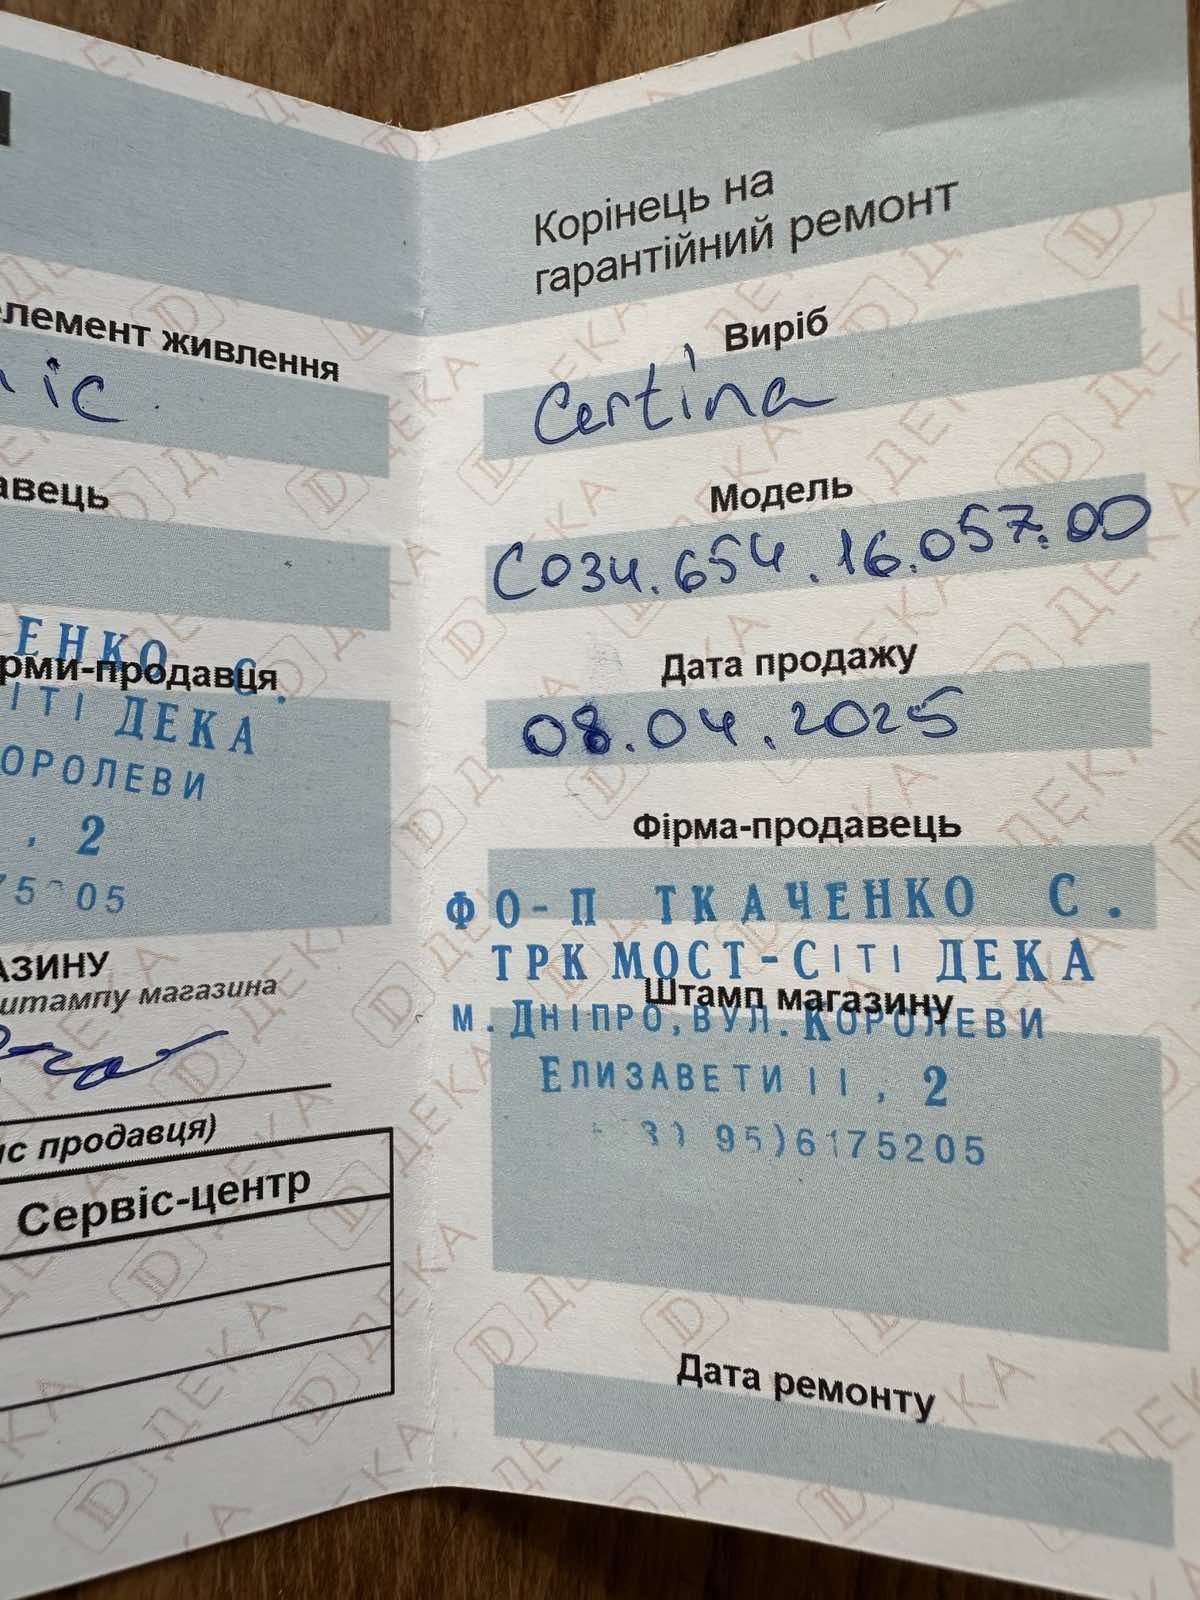 елемент живлення
ic
авець
ЕНКО С.
рми-продавця
ІТІ ДЕКА
ОРОЛЕВИ
, 2
05
АЗИНУ
штампу магазина
ис продавця)
Сервіс-центр
Корінець на
гарантійний ремонт
Виріб
Certina
Модель
C034.654.16.057.00
Дата продажу
08.04.2025
Фірма-продавець
ФО-П ТКАЧЕНКО С.
ТРК МОСТ-СІТІ ДЕКА
Штамп магазину
М.ДНІПРО,ВУЛ.КОРОЛЕВИ
ЕЛИЗАВЕТИ ІІ, 2
95)6175205
Дата ремонту